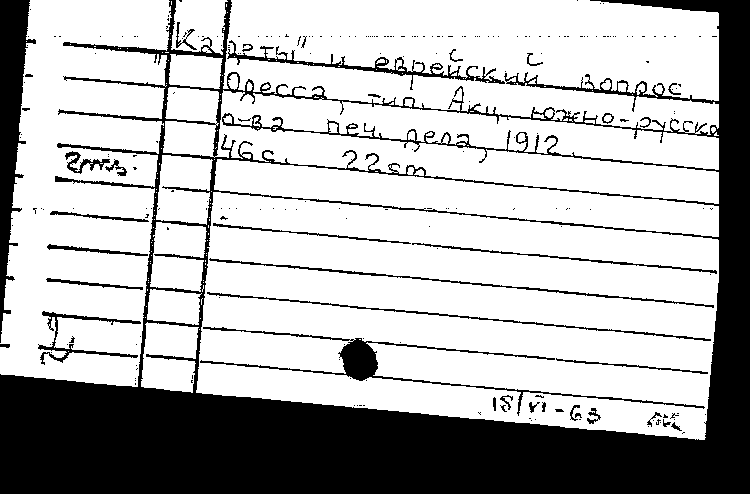 „Кадеты" и еврейский вопрос.
Одесса, тип. Акц. южно-русско
о-ва печ. дела, 1912.
46 с. 22 cm.
2 экз.
18/VI-63